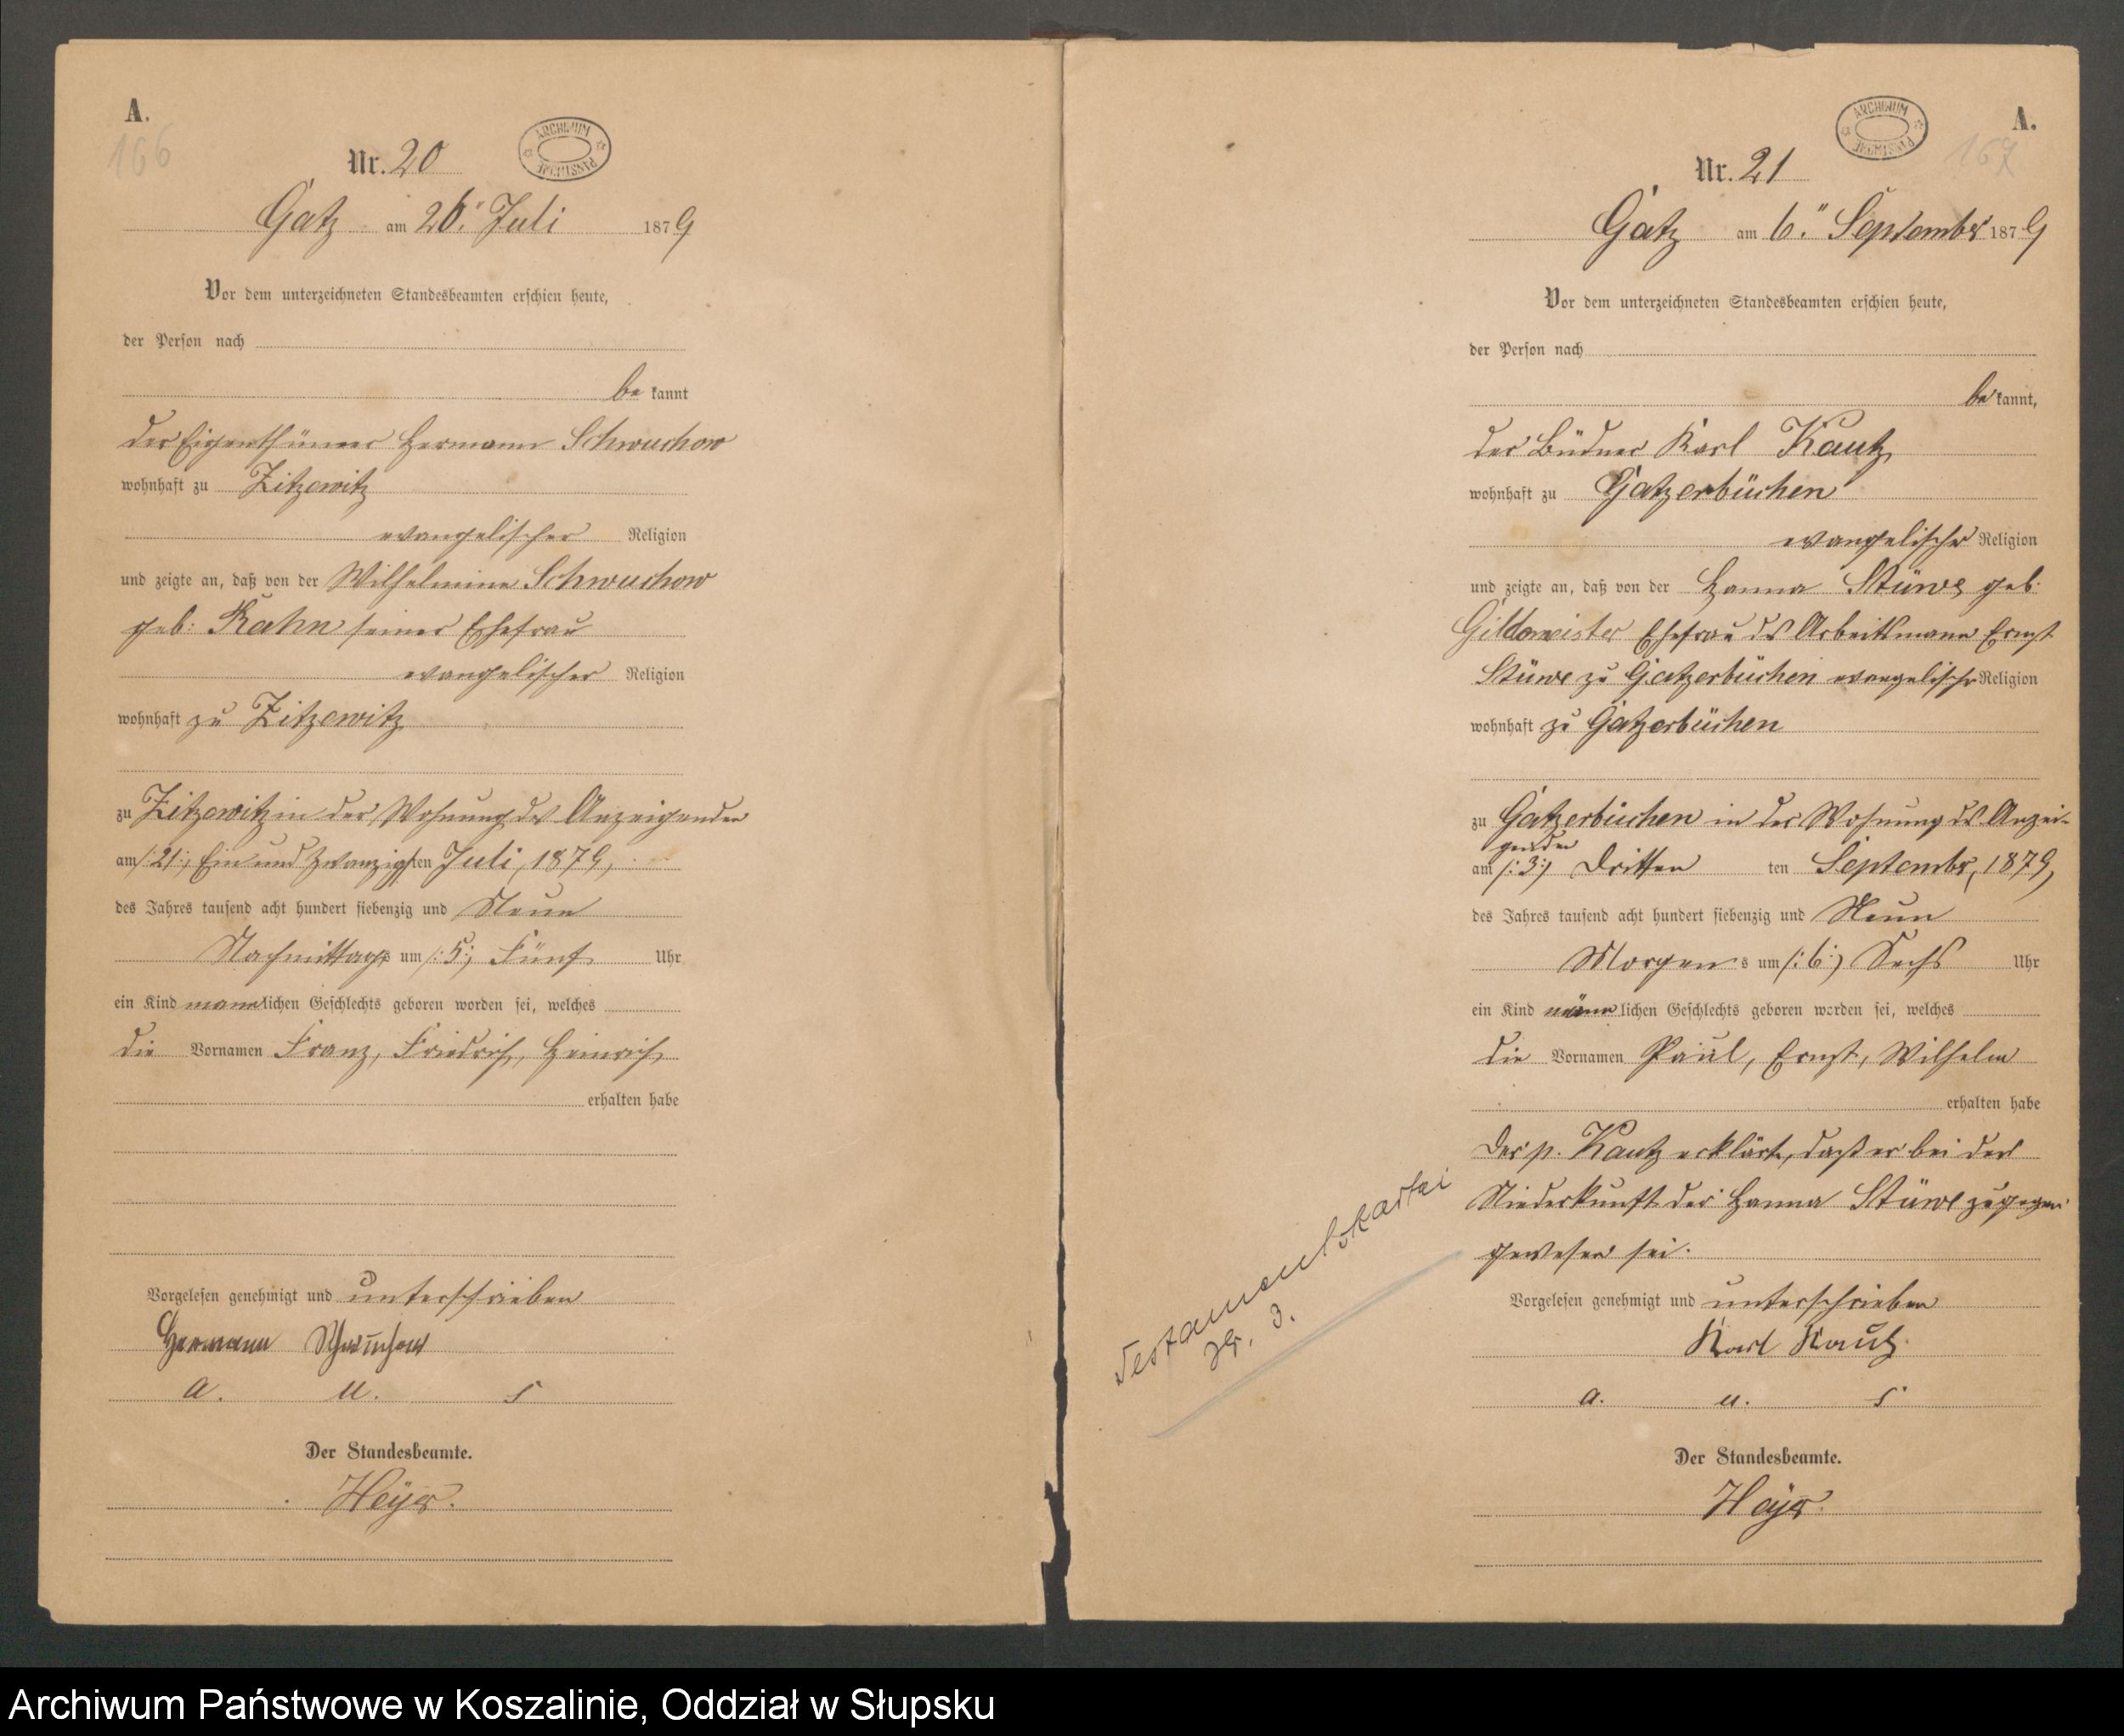 A.
166
Nr. 20
ARCHIWUM PAŃSTWOWE
Gatz am 26. Juli 1879
Vor dem unterzeichneten Standesbeamten erschien heute,
der Person nach
be kannt
der Eigenthümer Hermann Schwuchow
wohnhaft zu Zitzewitz
evangelischer Religion
und zeigte an, daß von der Wilhelmine Schwuchow
geb: Rahn seiner Ehefrau
evangelischer Religion
wohnhaft zu Zitzewitz
zu Zitzewitz in der Wohnung des Anzeigenden
am /:21:/ Ein und Zwanzigsten Juli, 1879,
des Jahres tausend acht hundert siebenzig und Neun
Nachmittags um /:5:/ Fünf Uhr
ein Kind mannlichen Geschlechts geboren worden sei, welches
die Vornamen Franz, Friedrich, Heinrich
erhalten habe
Vorgelesen genehmigt und unterschrieben
Hermann Schwuchow
a. u. s
Der Standesbeamte.
Heyer.
A.
167
Nr. 21
ARCHIWUM PAŃSTWOWE
Gatz am 6. September 1879
Vor dem unterzeichneten Standesbeamten erschien heute,
der Person nach
be kannt,
der Büdner Karl Kautz
wohnhaft zu Gatzerbüchen
evangelischer Religion
und zeigte an, daß von der Hanna Stüwe geb.
Gildemeister Ehefrau des Arbeitsmann Ernst
Stüwe zu Gatzerbüchen evangelischer Religion
wohnhaft zu Gatzerbüchen
zu Gatzerbüchen in der Wohnung des Anzei-
genden
am /:3:/ Dritten ten September, 1879,
des Jahres tausend acht hundert siebenzig und Neun
Morgens um /:6:/ Sechs Uhr
ein Kind männlichen Geschlechts geboren worden sei, welches
die Vornamen Paul, Ernst, Wilhelm
erhalten habe
Der p. Kautz erklärte, daß er bei der
Niederkunft der Hanna Stüwe zugegen
gewesen sei.
Vorgelesen genehmigt und unterschrieben
Karl Kautz.
a. u. s
Der Standesbeamte.
Heyer.
Testamentskartei
3.
Archiwum Państwowe w Koszalinie, Oddział w Słupsku